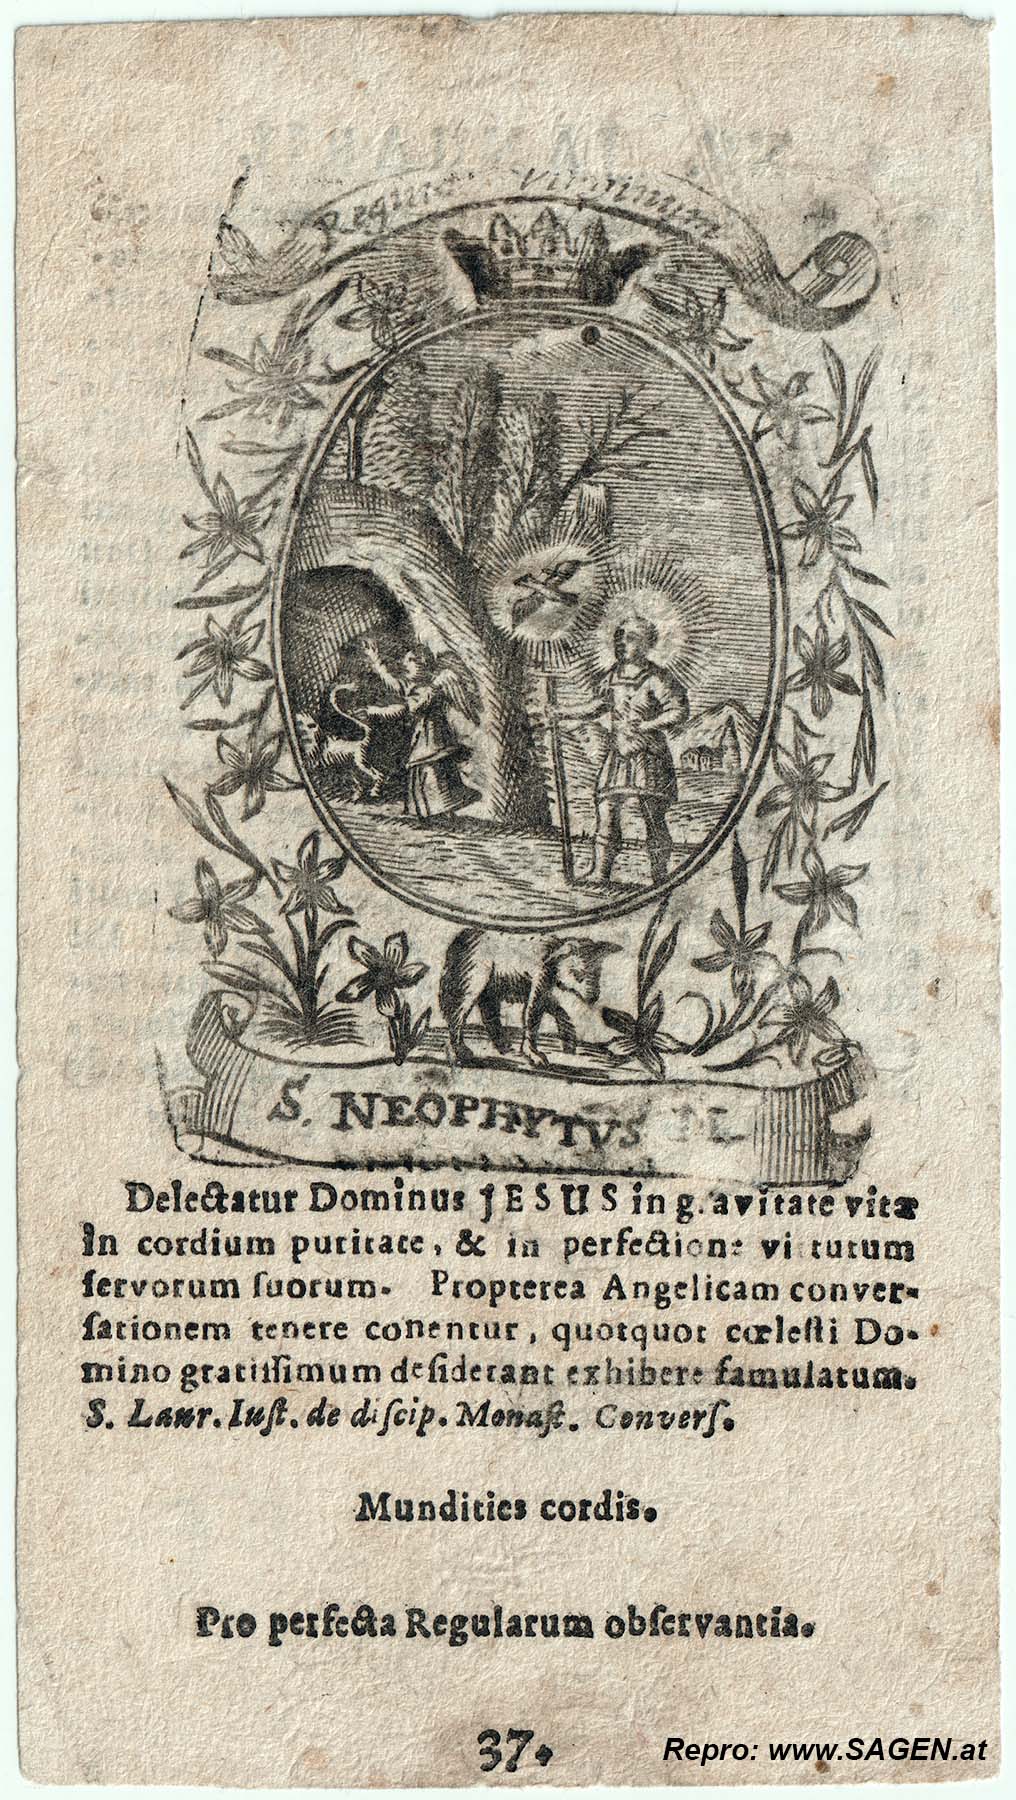 Regina virginum
S. NEOPHYTVS M.
Delectatur Dominus JESUS in g.avitate vitæ
In cordium puritate, & in perfectione vi tutum
ſervorum ſuorum. Propterea Angelicam conver-
ſationem tenere conentur, quotquot cœleſti Do-
mino gratiſſimum deſiderant exhibere famulatum.
S. Laur. Iuſt. de diſcip. Monaſt. Converſ.
Mundities cordis.
Pro perfecta Regularum obſervantia.
37.
Repro: www.SAGEN.at